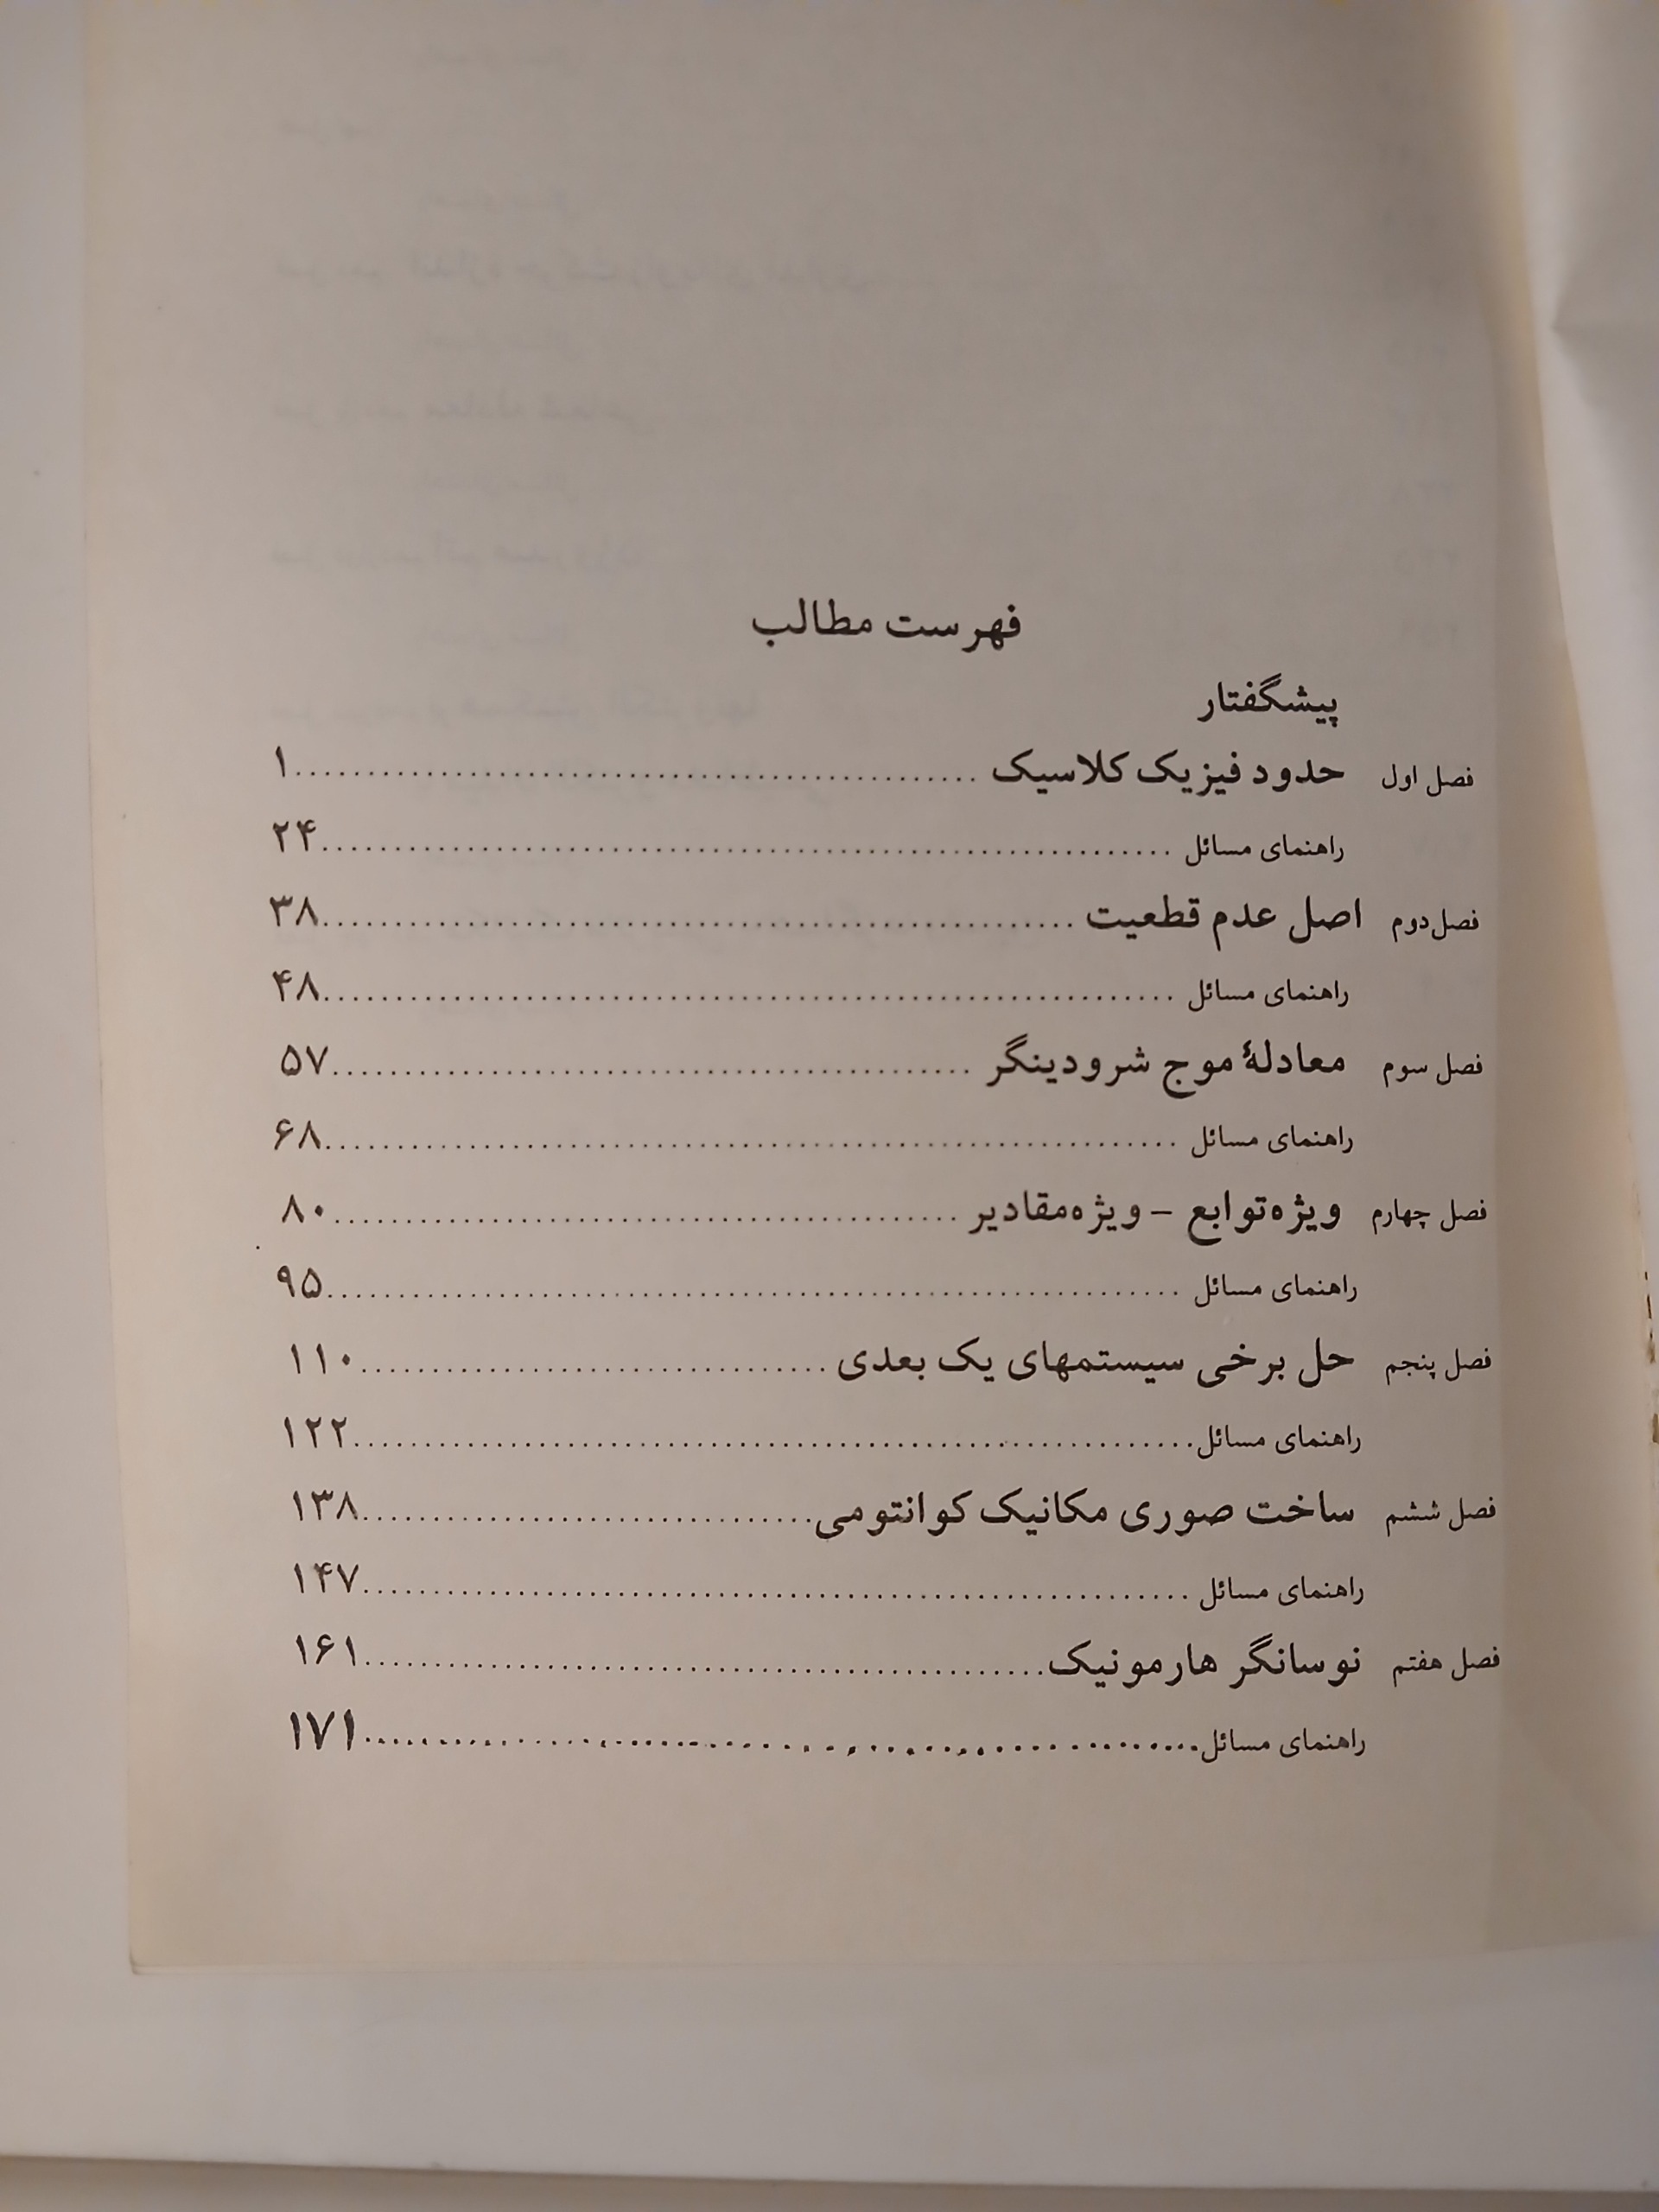 فهرست مطالب
پیشگفتار
فصل اول حدود فیزیک کلاسیک ۱
راهنمای مسائل ۲۴
فصل دوم اصل عدم قطعیت ۳۸
راهنمای مسائل ۴۸
فصل سوم معادلهٔ موج شرودینگر ۵۷
راهنمای مسائل ۶۸
فصل چهارم ویژه‌توابع – ویژه‌مقادیر ۸۰
راهنمای مسائل ۹۵
فصل پنجم حل برخی سیستمهای یک بعدی ۱۱۰
راهنمای مسائل ۱۲۲
فصل ششم ساخت صوری مکانیک کوانتومی ۱۳۸
راهنمای مسائل ۱۴۷
فصل هفتم نوسانگر هارمونیک ۱۶۱
راهنمای مسائل ۱۷۱